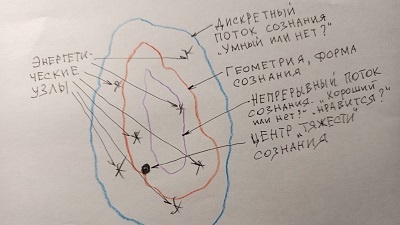 ДИСКРЕТНЫЙ
ПОТОК СОЗНАНИЯ
„УМНЫЙ ИЛИ НЕТ?"
ЭНЕРГЕТИ-
ЧЕСКИЕ
УЗЛЫ
ГЕОМЕТРИЯ, ФОРМА
СОЗНАНИЯ
НЕПРЕРЫВНЫЙ ПОТОК
СОЗНАНИЯ. „ХОРОШИЙ
ИЛИ НЕТ?" „НРАВИТСЯ?"
ЦЕНТР „ТЯЖЕСТИ"
СОЗНАНИЯ